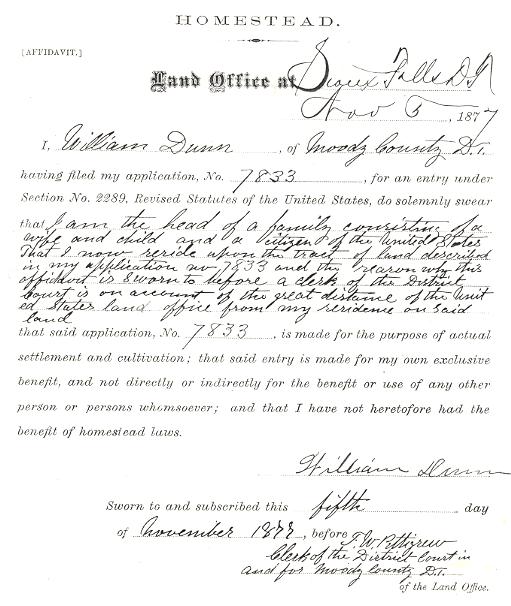 HOMESTEAD.
[AFFIDAVIT.]
Land Office at Sioux Falls D.T.
Nov 5, 1877
I, William Dunn, of Moody County D.T.
having filed my application, No. 7833, for an entry under
Section No. 2289, Revised Statutes of the United States, do solemnly swear
that I am the head of a family consisting of a
wife and child and a citizen of the United States
that I now reside upon the tract of land described
in my application no 7833 and the reason why this
affidavit is sworn to before a clerk of the District
Court is on account of the great distance of the Unit
ed States land office from my residence on said
land
that said application, No. 7833, is made for the purpose of actual
settlement and cultivation; that said entry is made for my own exclusive
benefit, and not directly or indirectly for the benefit or use of any other
person or persons whomsoever; and that I have not heretofore had the
benefit of homestead laws.
William Dunn
Sworn to and subscribed this fifth day
of November 1877, before F. W. Pettigrew
Clerk of the District Court in
and for Moody County D.T.
of the Land Office.